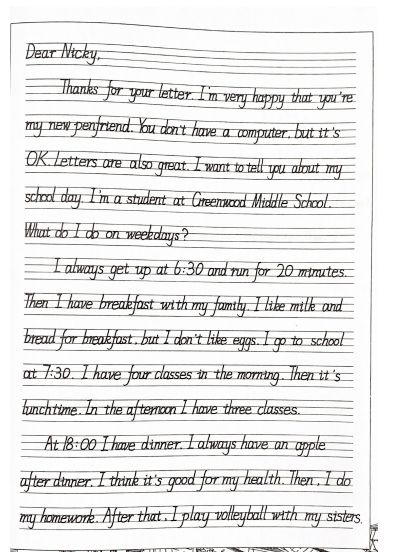 Dear Nicky,
Thanks for your letter. I'm very happy that you're
my new penfriend. You don't have a computer, but it's
OK. Letters are also great. I want to tell you about my
school day. I'm a student at Greenwood Middle School.
What do I do on weekdays?
I always get up at 6:30 and run for 20 minutes.
Then I have breakfast with my family. I like milk and
bread for breakfast, but I don't like eggs. I go to school
at 7:30. I have four classes in the morning. Then it's
lunchtime. In the afternoon I have three classes.
At 18:00 I have dinner. I always have an apple
after dinner. I think it's good for my health. Then, I do
my homework. After that, I play volleyball with my sisters.